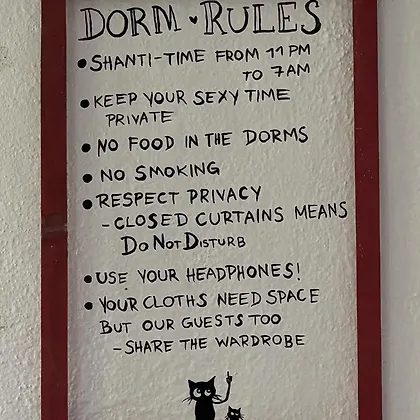 DORM RULES
• SHANTI-TIME FROM 11 PM
TO 7AM
• KEEP YOUR SEXY TIME
PRIVATE
• NO FOOD IN THE DORMS
• NO SMOKING
• RESPECT PRIVACY
- CLOSED CURTAINS MEANS
DO NOT DISTURB
• USE YOUR HEADPHONES!
• YOUR CLOTHS NEED SPACE
BUT OUR GUESTS TOO
- SHARE THE WARDROBE